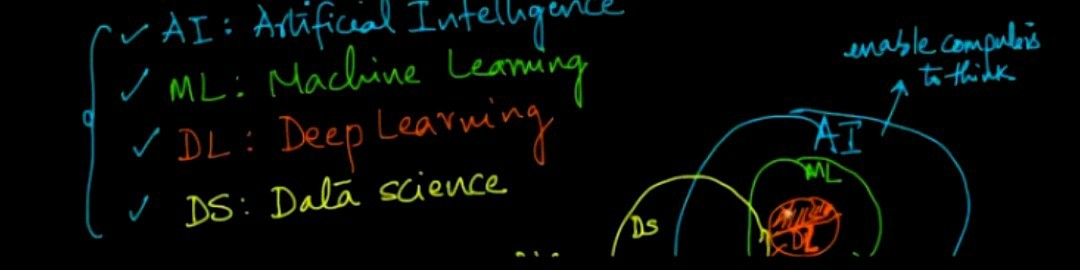 AI: Artificial Intelligence
ML: Machine Learning
DL: Deep Learning
DS: Data science
enable computers
to think
AI
ML
DS
DL